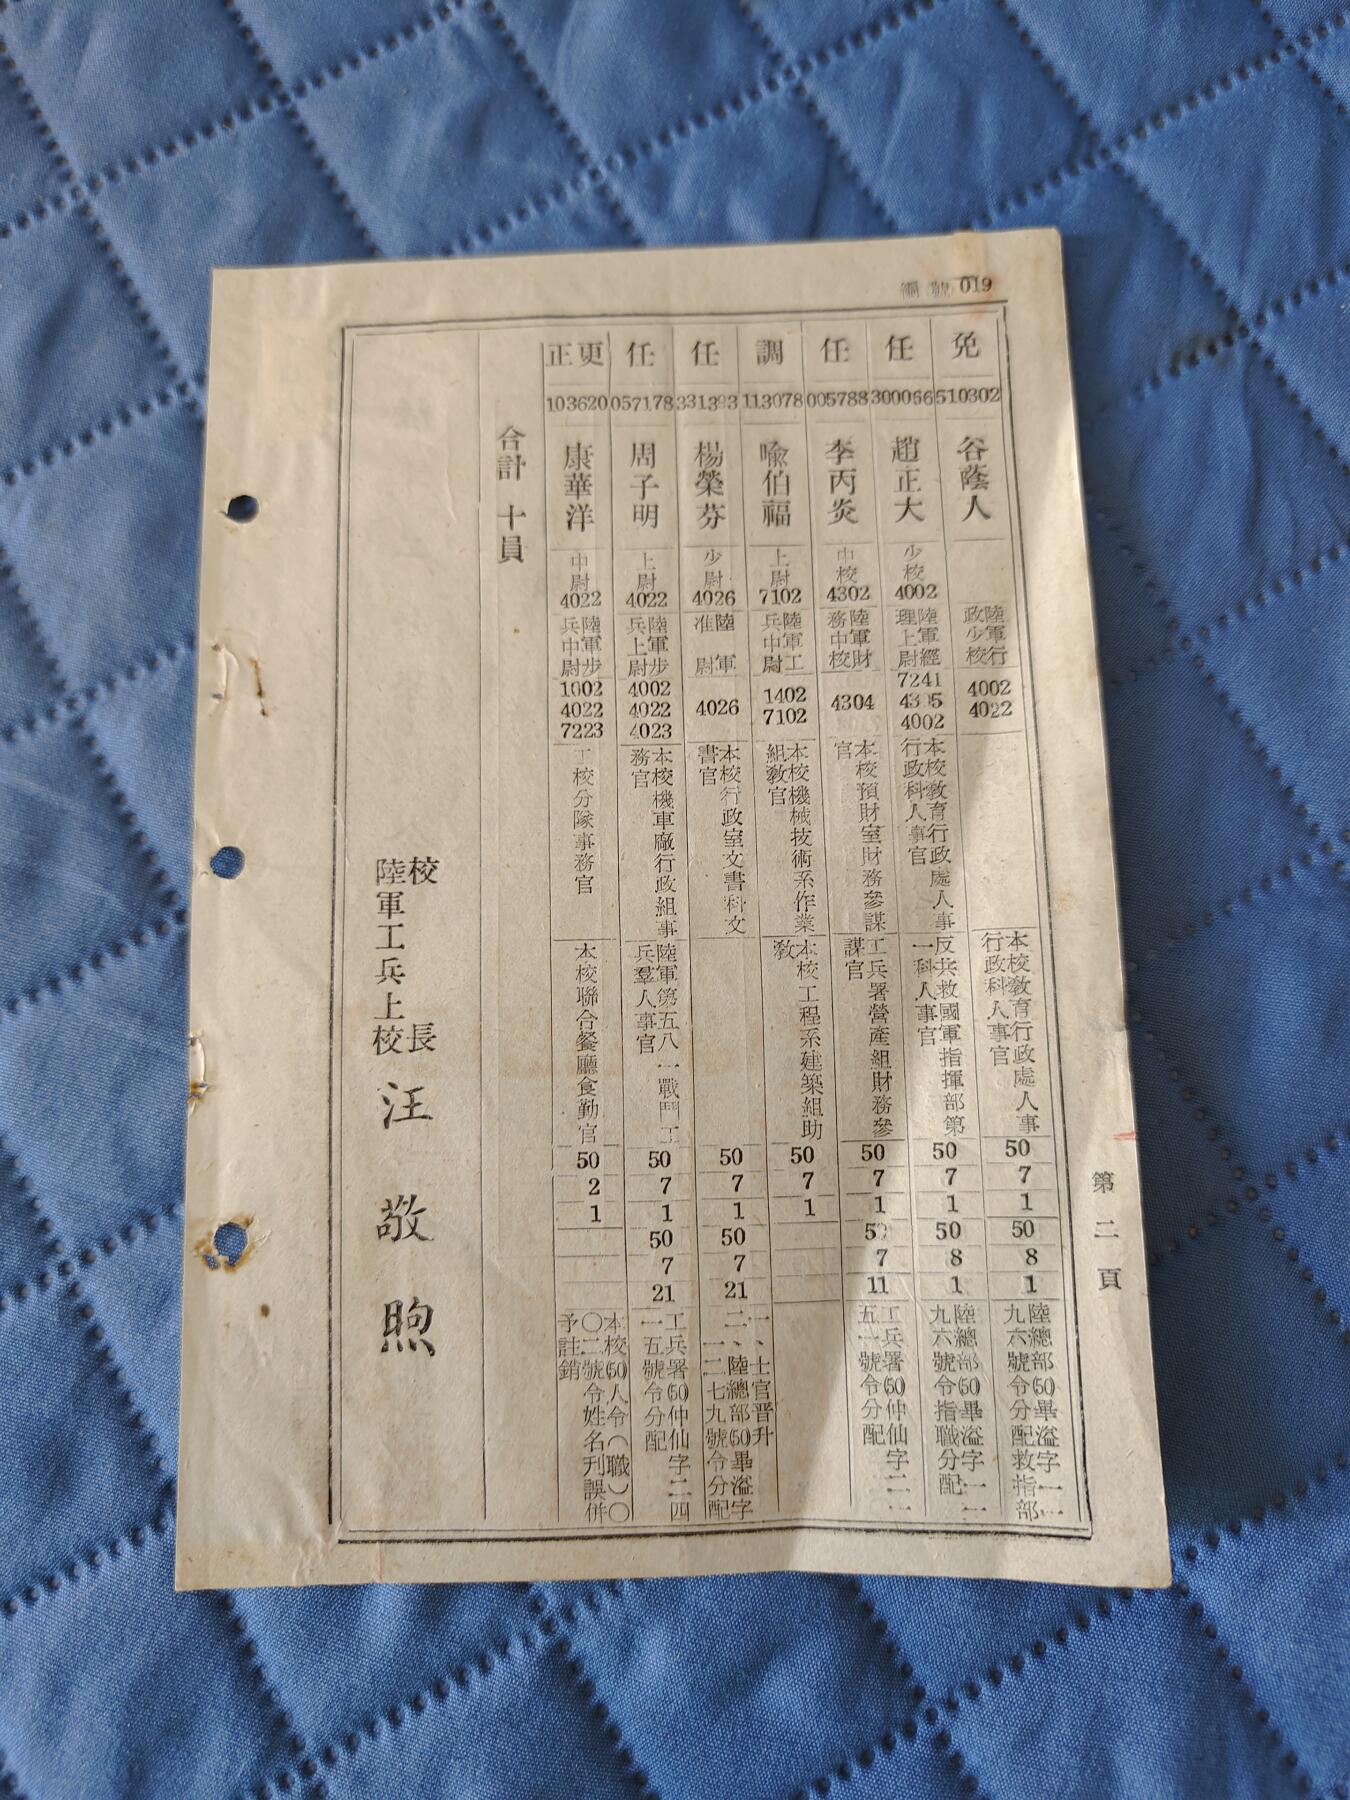 編號 019
第二頁
免
510302
谷蔭人
陸軍行
政少校
4002
4022
本校教育行政處人事
行政科人事官
50
7
1
50
8
1
陸總部(50)畢溢字一一
九六號令分配救指部
任
300066
趙正大
少校
4002
陸軍經
理上尉
7241
4305
4002
本校教育行政處人事
行政科人事官
反共救國軍指揮部第
一科人事官
50
7
1
50
8
1
陸總部(50)畢溢字一一
九六號令指職分配
任
005788
李丙炎
中校
4302
陸軍財
務中校
4304
本校預財室財務參謀
官
工兵署營產組財務參
謀官
50
7
1
50
7
11
工兵署(50)仲仙字二一
五一號令分配
調
113078
喩伯福
上尉
7102
陸軍工
兵中尉
1402
7102
本校機械技術系作業
組教官
本校工程系建築組助
教
50
7
1
任
331393
楊榮芬
少尉
4026
陸軍
准尉
4026
本校行政室文書科文
書官
50
7
1
50
7
21
一、士官晋升
二、陸總部(50)畢溢字
一二七九號令分配
任
057178
周子明
上尉
4022
陸軍步
兵上尉
4002
4022
4023
本校機車廠行政組事
務官
陸軍第五八一戰鬥工
兵羣人事官
50
7
1
50
7
21
工兵署(50)仲仙字二四
一五號令分配
更正
103620
康華洋
中尉
4022
陸軍步
兵中尉
1002
4022
7223
工校分隊事務官
本校聯合餐廳食勤官
50
2
1
本校(50)人令(職)〇
〇二號令姓名刊誤併
予註銷
合計 十員
校長
陸軍工兵上校 汪敬煦